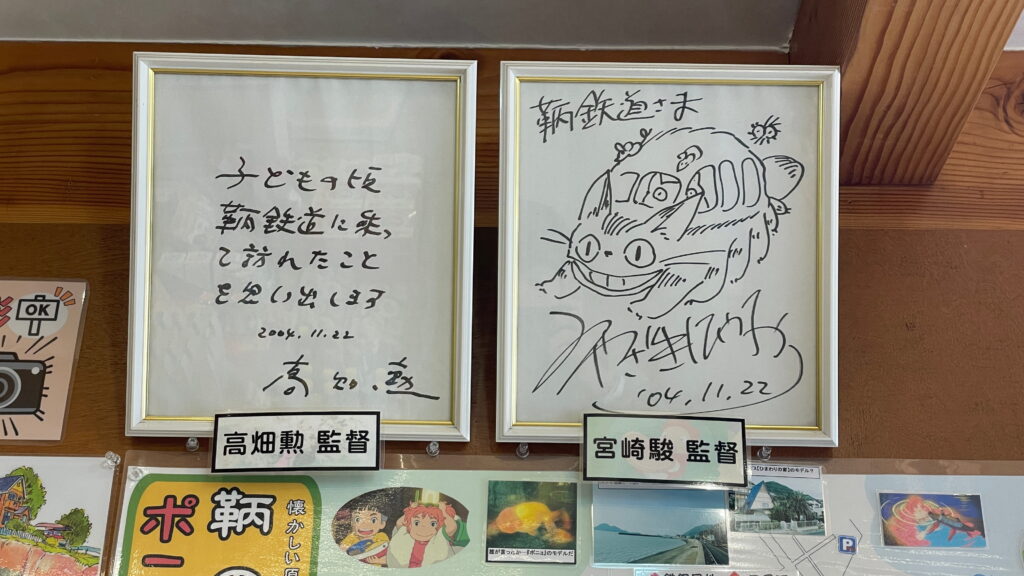 子どもの頃
鞆鉄道に乗っ
て訪れたこと
を思い出します
2004.11.22
高畑 勲
高畑勲 監督
鞆鉄道さま
みやざきはやお
'04.11.22
宮崎駿 監督
OK
鞆
ポ
懐かしい